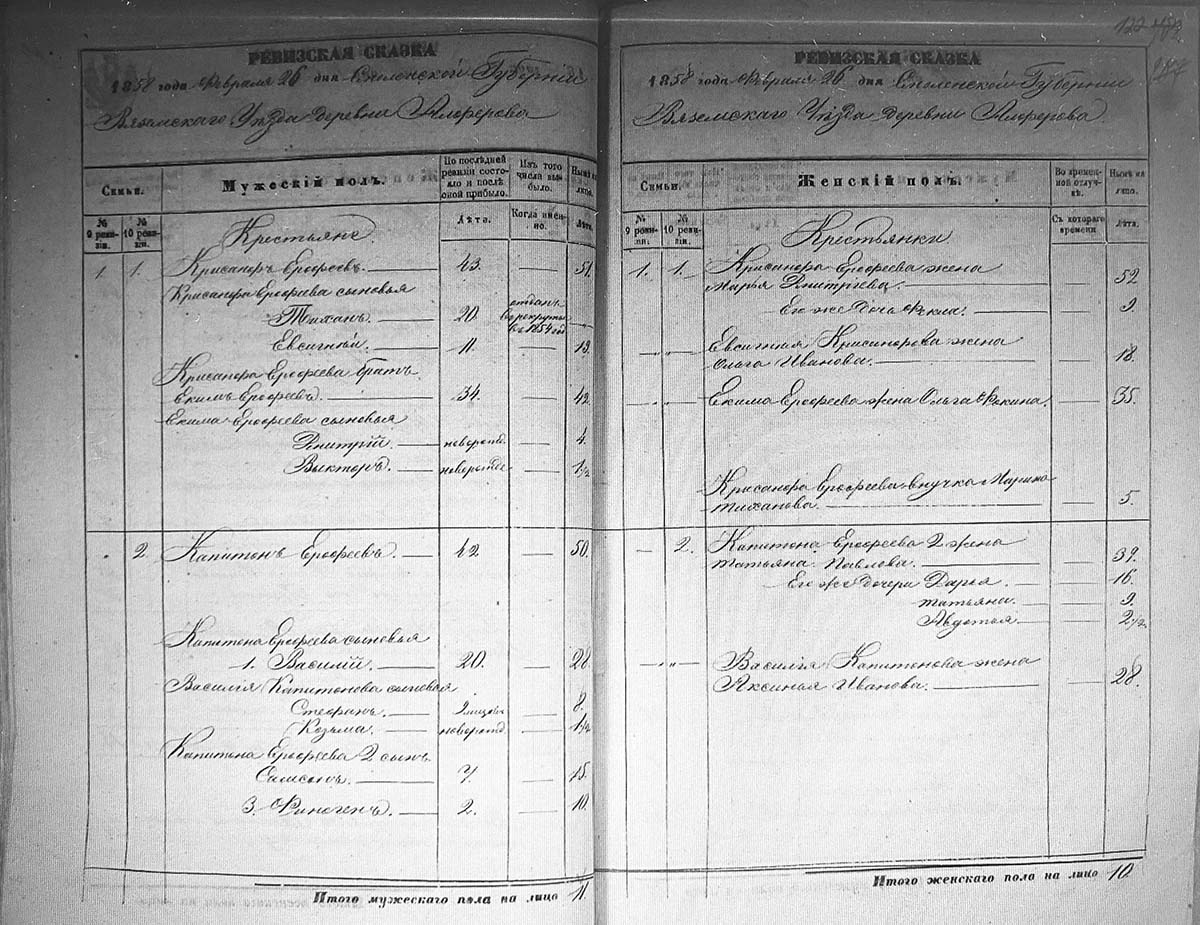 РЕВИЗСКАЯ СКАЗКА
1858 года Февраля 26 дня Смоленской Губернии
Вяземскаго Уѣзда деревни Алферова
Семьи.
Мужескій полъ.
По послѣдней ревизіи состояло и послѣ оной прибыло.
Изъ того числа выбыло.
Нынѣ на лицо.
№ 9 ревизіи.
№ 10 ревизіи.
Лѣта.
Когда именно.
Лѣта.
Крестьяне
1. 1. Крисанфъ Ерофеевъ. 43. 51.
Крисанфа Ерофеева сыновья
Тиханъ. 20. отданъ в рекруты въ 1854 год
Евсигней. 11. 19.
Крисанфа Ерофеева братъ
Екимъ Ерофеевъ. 34. 42.
Екима Ерофеева сыновья
Дмитрій. новорожд. 4.
Викторъ. новорожде 1½
2. Капитонъ Ерофеевъ. 42 50.
Капитона Ерофеева сыновья
1. Василій. 20. 28.
Василія Капитонова сыновья
Стефанъ. 8.
Козьма. новорожд. 1½
Капитона Ерофеева 2 сынъ
Самсонъ. 7. 15.
3. Финогенъ. 2. 10.
Итого мужескаго пола на лицо 11.
122
РЕВИЗСКАЯ СКАЗКА
1858 года Февраля 26 дня Смоленской Губернии
Вяземскаго Уѣзда деревни Алферова
Семьи.
Женскій полъ.
Во временной отлучкѣ.
Нынѣ на лицо.
№ 9 ревизіи.
№ 10 ревизіи.
Съ котораго времени
Лѣта.
Крестьянки
1. 1. Крисанфа Ерофеева жена
Марья Дмитріева. 52
Его же дочь Фекла. 9.
Евсигнія Крисанфова жена
Ольга Иванова. 18.
Екима Ерофеева жена Ольга Фокина. 35.
Крисанфа Ерофеева внучка Марина
тиханова. 5.
2. Капитона Ерофеева 2 жена
татьяна Павлова. 39.
Его же дочери Дарья. 16.
татьяна. 9.
Авдотья 2½.
Василія Капитонова жена
Аксинья Иванова. 28.
Итого женскаго пола на лицо 10.